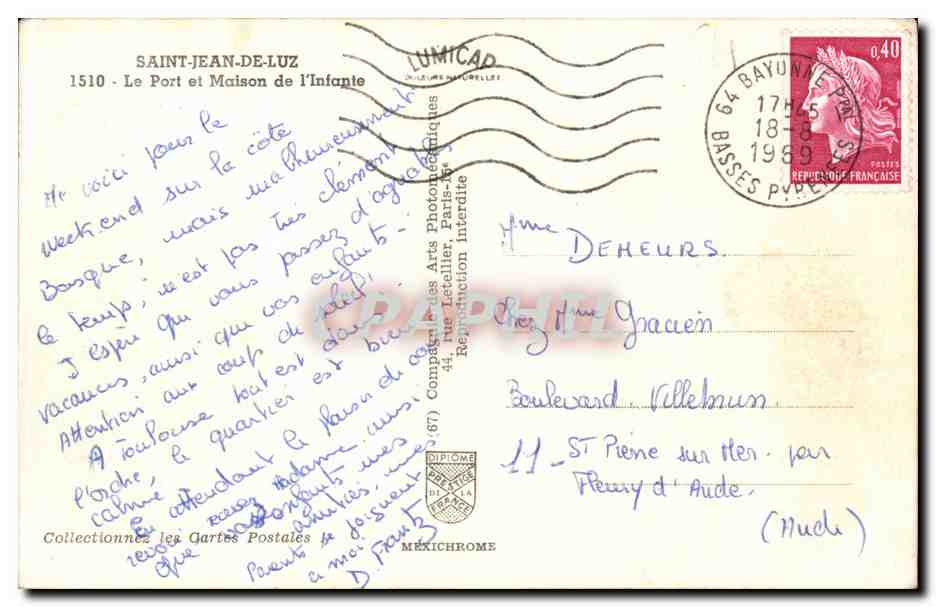 SAINT-JEAN-DE-LUZ
1510 - Le Port et Maison de l'Infante
Me voici pour le
week.end sur la côte
Basque, mais malheureusement
le temps, n'est pas très clément
J'espère que vous passez d'agréables
vacances, ainsi que vos enfants -
Attention aux coups de soleil,
A Toulouse tout est dans
l'ordre, le quartier est bien
calme
En attendant le plaisir de
revoir Madame, ainsi
que vos enfants mes
amitiés, mes
Parents se joignent
a moi
D. Frantz
Collectionnez les Cartes Postales
(67) Compagnie des Arts Photomécaniques
44, rue Letellier, Paris-15e
Reproduction interdite
DIPLÔME
PRESTIGE
DE LA
FRANCE
MEXICHROME
LUMICAP
COULEURS NATURELLES
64 BAYONNE PPAL
17H45
18-8
1969
BASSES PYRENEES
0,40
POSTES
REPUBLIQUE FRANÇAISE
Mme DEHEURS.
Chez Mme Gracien
Boulevard Villebrun
11 - ST Pierre sur Mer par
Fleury d'Aude.
(Aude)
CPAPHIL